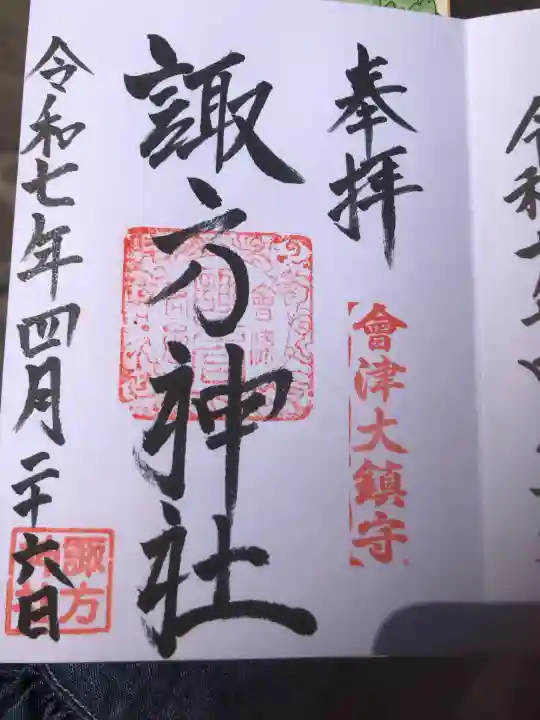 奉拝
會津大鎮守
諏方神社
令和七年四月二十六日
諏方